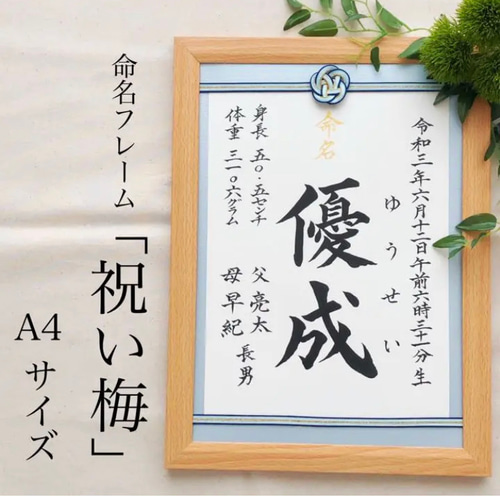 命名フレーム
「祝い梅」
A4サイズ
令和三年六月十二日午前六時三十一分生
ゆうせい
命名
優成
身長 五〇・五センチ
体重 三一〇六グラム
父 亮太
母 早紀
長男